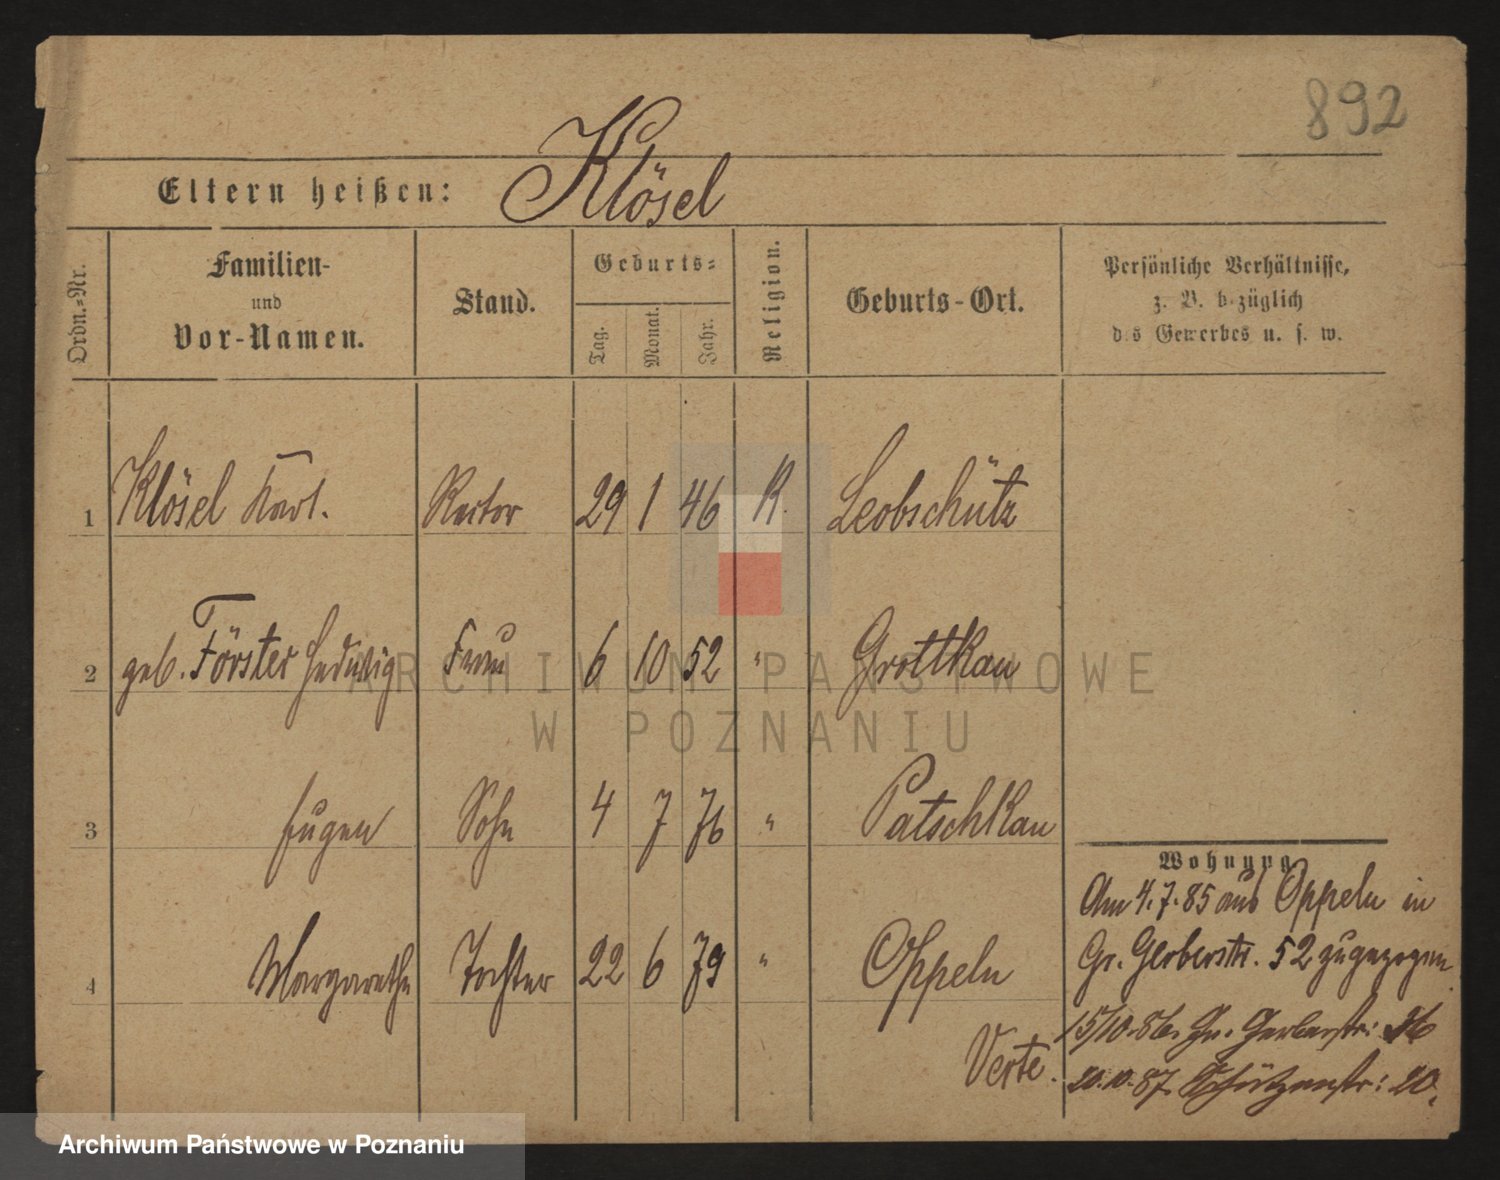 892
Eltern heißen: Klösel
Ordn.-Nr.
Familien-
und
Vor-Namen.
Stand.
Geburts-
Tag.
Monat.
Jahr.
Religion.
Geburts-Ort.
Persönliche Verhältnisse,
z. B. bezüglich
des Gewerbes u. s. w.
1 Klösel Karl. Rector 29 1 46 K. Leobschütz
2 geb. Förster Hedwig Frau 6 10 52 " Grottkau
3 Eugen Sohn 4 7 76 " Patschkau
Wohnung
Am 4.7.85 aus Oppeln in
4 Margarethe Tochter 22 6 79 " Oppeln
Gr. Gerberstr. 52 zugezogen
15/10.86. Gr. Gerberstr: 36
Verte.
20.10.87. Schützenstr: 20.
ARCHIWUM PAŃSTWOWE
W POZNANIU
Archiwum Państwowe w Poznaniu